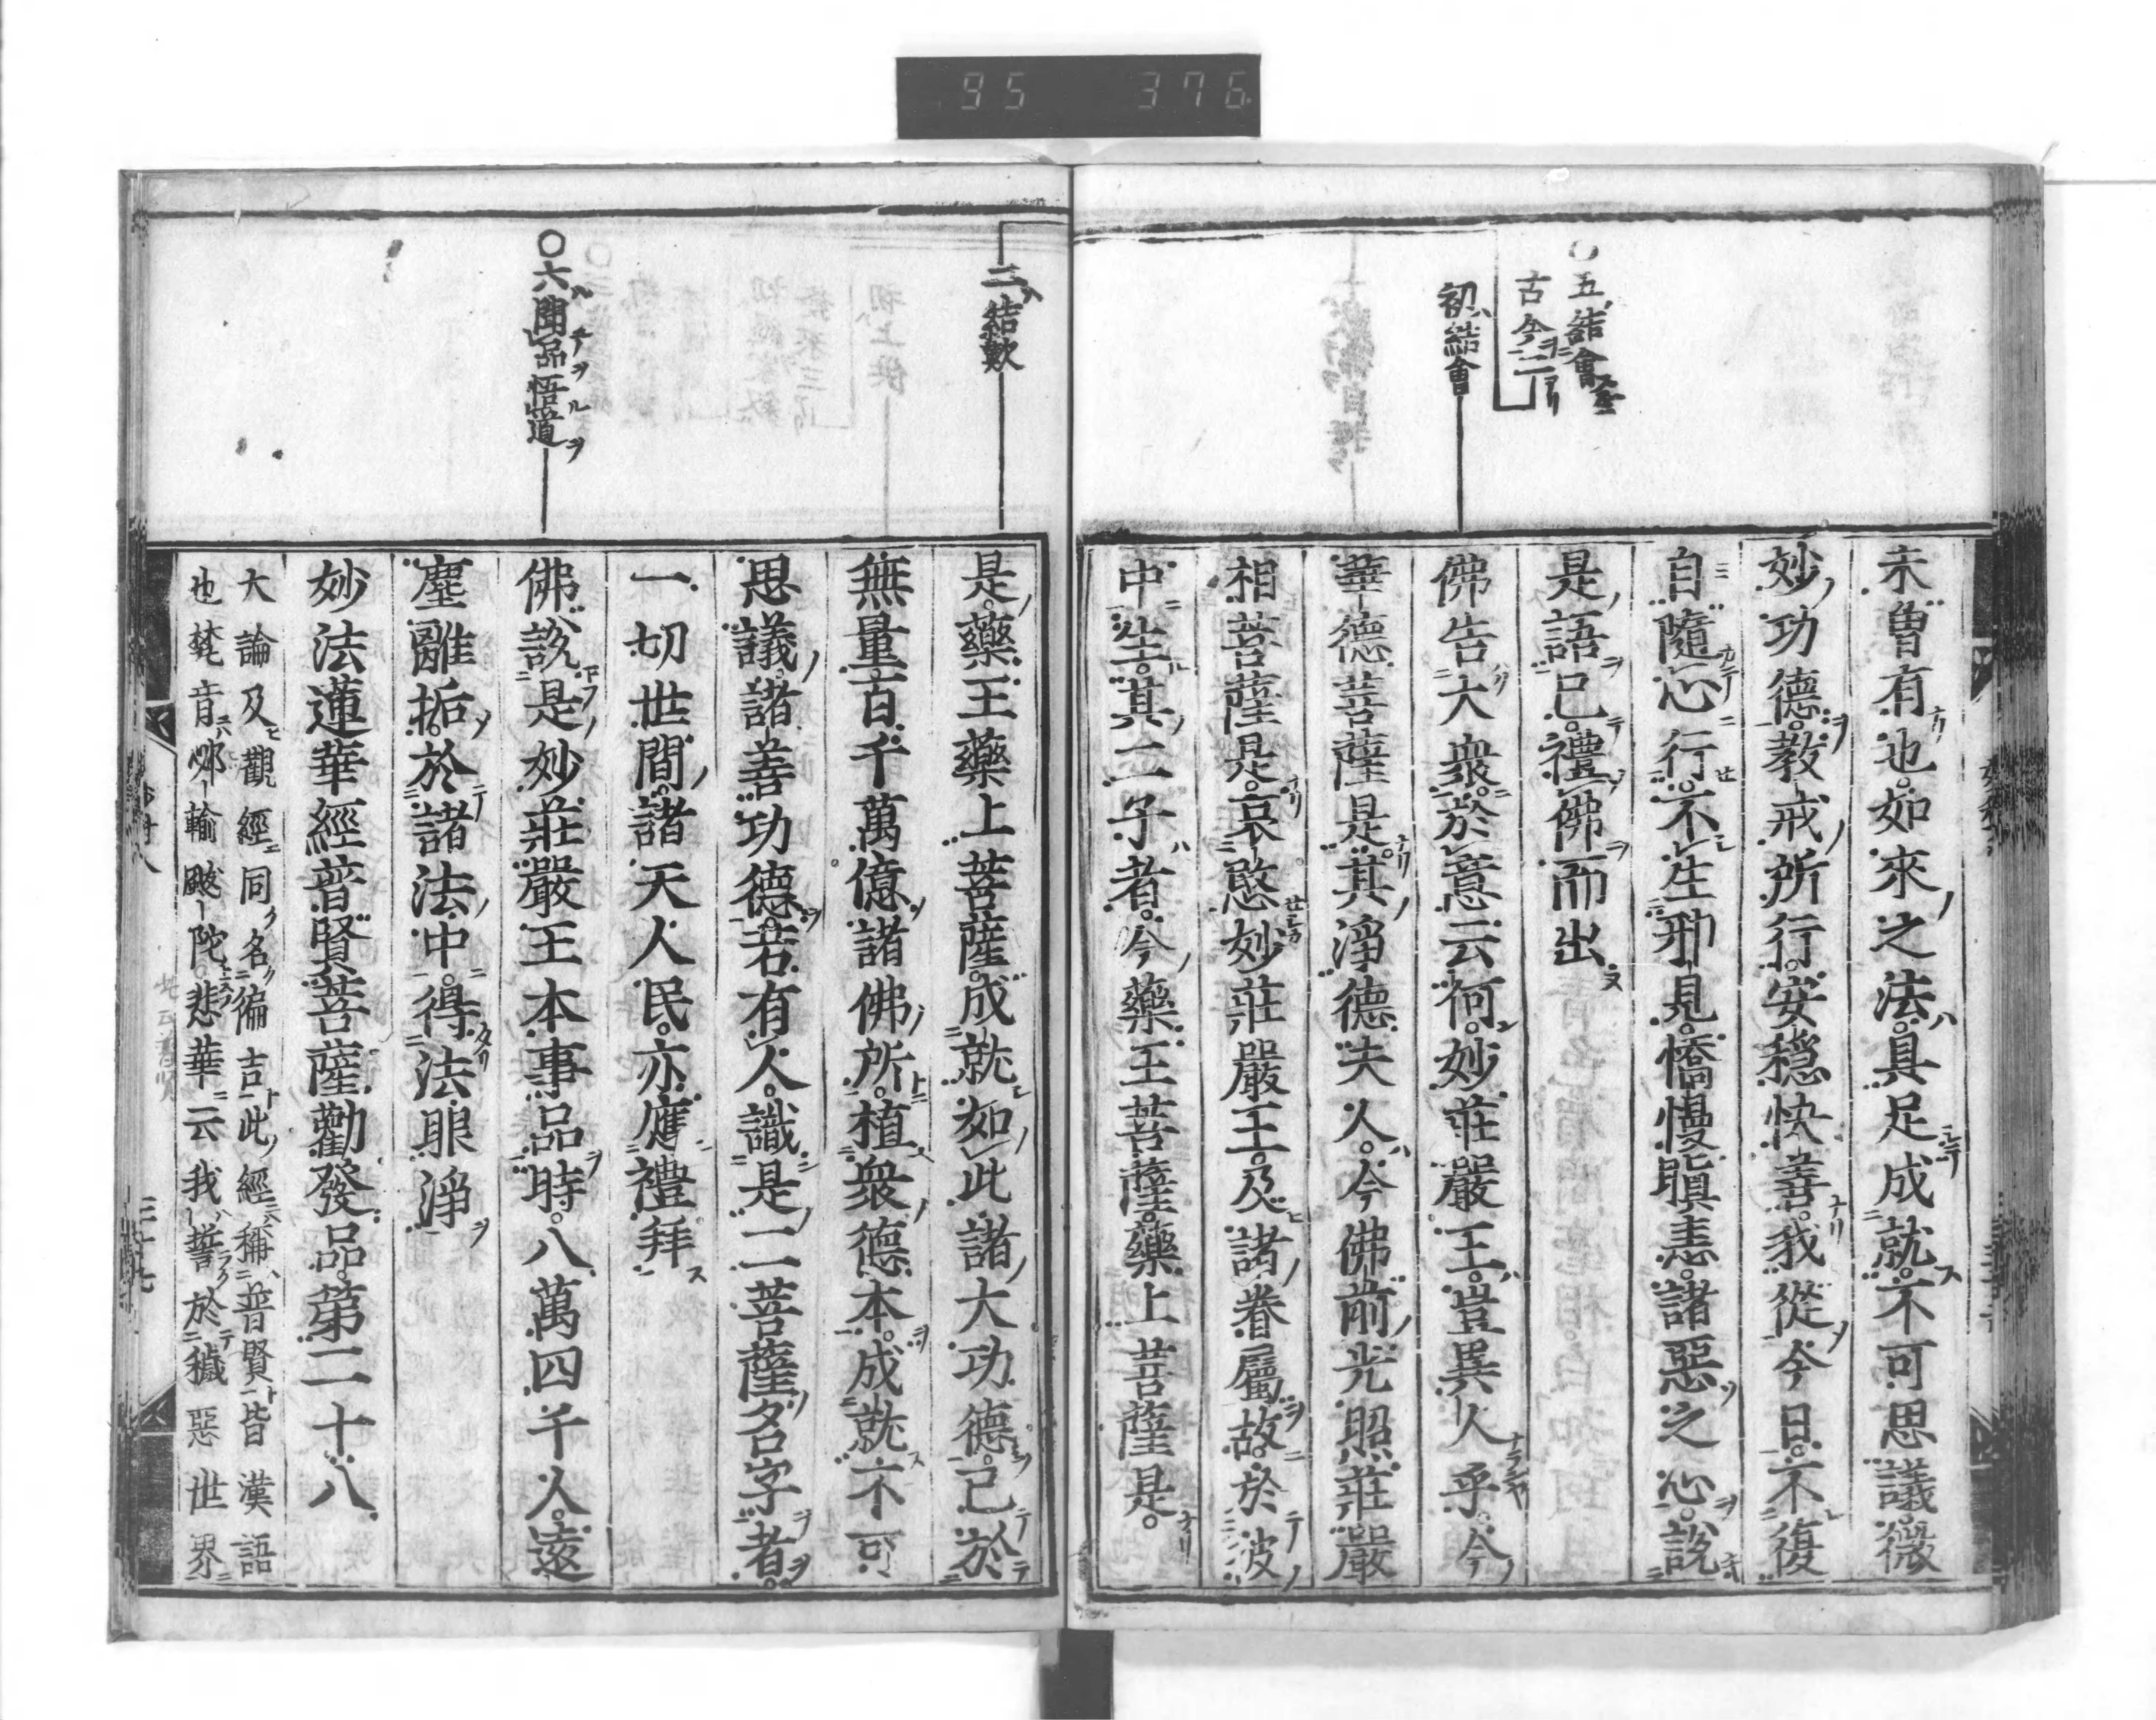 95 376
○五結會
古今二
初結會
未曾有也。如來之法。具足成就。不可思議。微
妙功德。教戒所行。安穩快善。我從今日。不復
自隨心行。不生邪見。憍慢瞋恚。諸惡之心。說
是語已。禮佛而出
佛告大衆。於意云何。妙莊嚴王。豈異人乎。今
華德菩薩是。其淨德夫人。今佛前光照莊嚴
相菩薩是。哀愍妙莊嚴王。及諸眷屬故。於彼
中生。其二子者。今藥王菩薩。藥上菩薩是。
二結歎
是藥王藥上菩薩。成就如此諸大功德。已於
無量百千萬億諸佛所。植衆德本。成就不可
思議。諸善功德。若有人。識是二菩薩名字者。
一切世間。諸天人民。亦應禮拜
○六聞品悟道
佛說是妙莊嚴王本事品時。八萬四千人。遠
塵離垢。於諸法中。得法眼淨
妙法蓮華經普賢菩薩勸發品。第二十八
大論及觀經同名徧吉此經稱普賢皆漢語
也梵音邲輸颰陀。悲華云我誓於穢惡世界